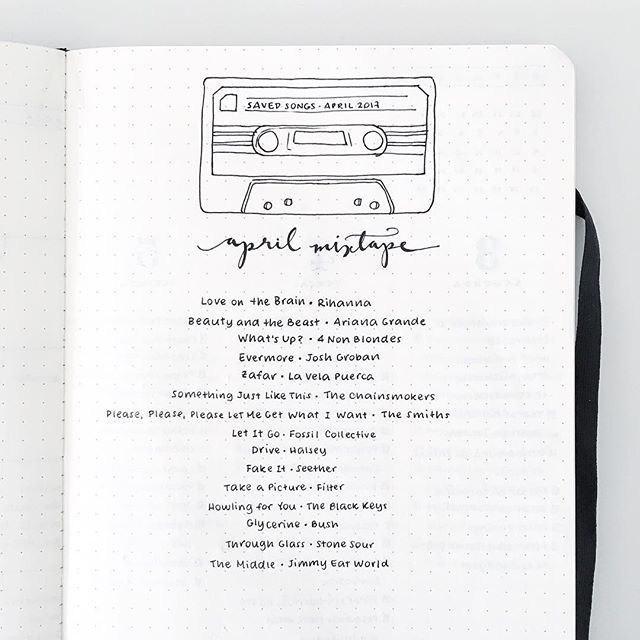 SAVED SONGS - APRIL 2017
april mixtape
Love on the Brain • Rihanna
Beauty and the Beast • Ariana Grande
What's Up? • 4 Non Blondes
Evermore • Josh Groban
Zafar • La Vela Puerca
Something Just Like This • The Chainsmokers
Please, Please, Please Let Me Get What I Want • The Smiths
Let It Go • Fossil Collective
Drive • Halsey
Fake It • Seether
Take a Picture • Filter
Howling for You • The Black Keys
Glycerine • Bush
Through Glass • Stone Sour
The Middle • Jimmy Eat World